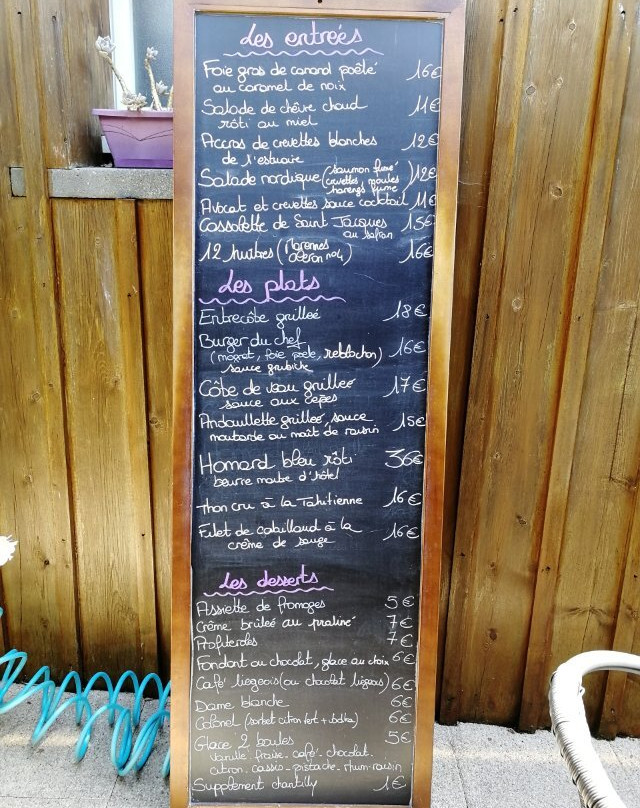 Les entrées
Foie gras de canard poêlé 16€
au caramel de noix
Salade de chèvre chaud 11€
rôti au miel
Accras de crevettes blanches 12€
de l'estuaire
Salade nordique (saumon fumé 12€
crevettes, moules
harengs fumé)
Avocat et crevettes sauce cocktail 11€
Cassolette de Saint Jacques 15€
au safran
12 huîtres (Marennes 16€
oléron n°4)
Les plats
Entrecôte grillée 18€
Burger du chef 16€
(magret, foie poêlé, reblochon)
sauce gribiche
Côte de veau grillée 17€
sauce aux cèpes
Andouillette grillée, sauce 15€
moutarde au moût de raisin
Homard bleu rôti 36€
beurre maître d'hôtel
Thon cru à la Tahitienne 16€
Filet de cabillaud à la 16€
crème de sauge
Les desserts
Assiette de fromages 5€
Crème brûlée au praliné 7€
Profiteroles 7€
Fondant au chocolat, glace au choix 6€
Café liégeois (ou chocolat liégeois) 6€
Dame blanche 6€
Colonel (sorbet citron vert + vodka) 6€
Glace 2 boules 5€
Vanille. fraise. café. chocolat.
citron. cassis. pistache. rhum-raisin
Supplément chantilly 1€